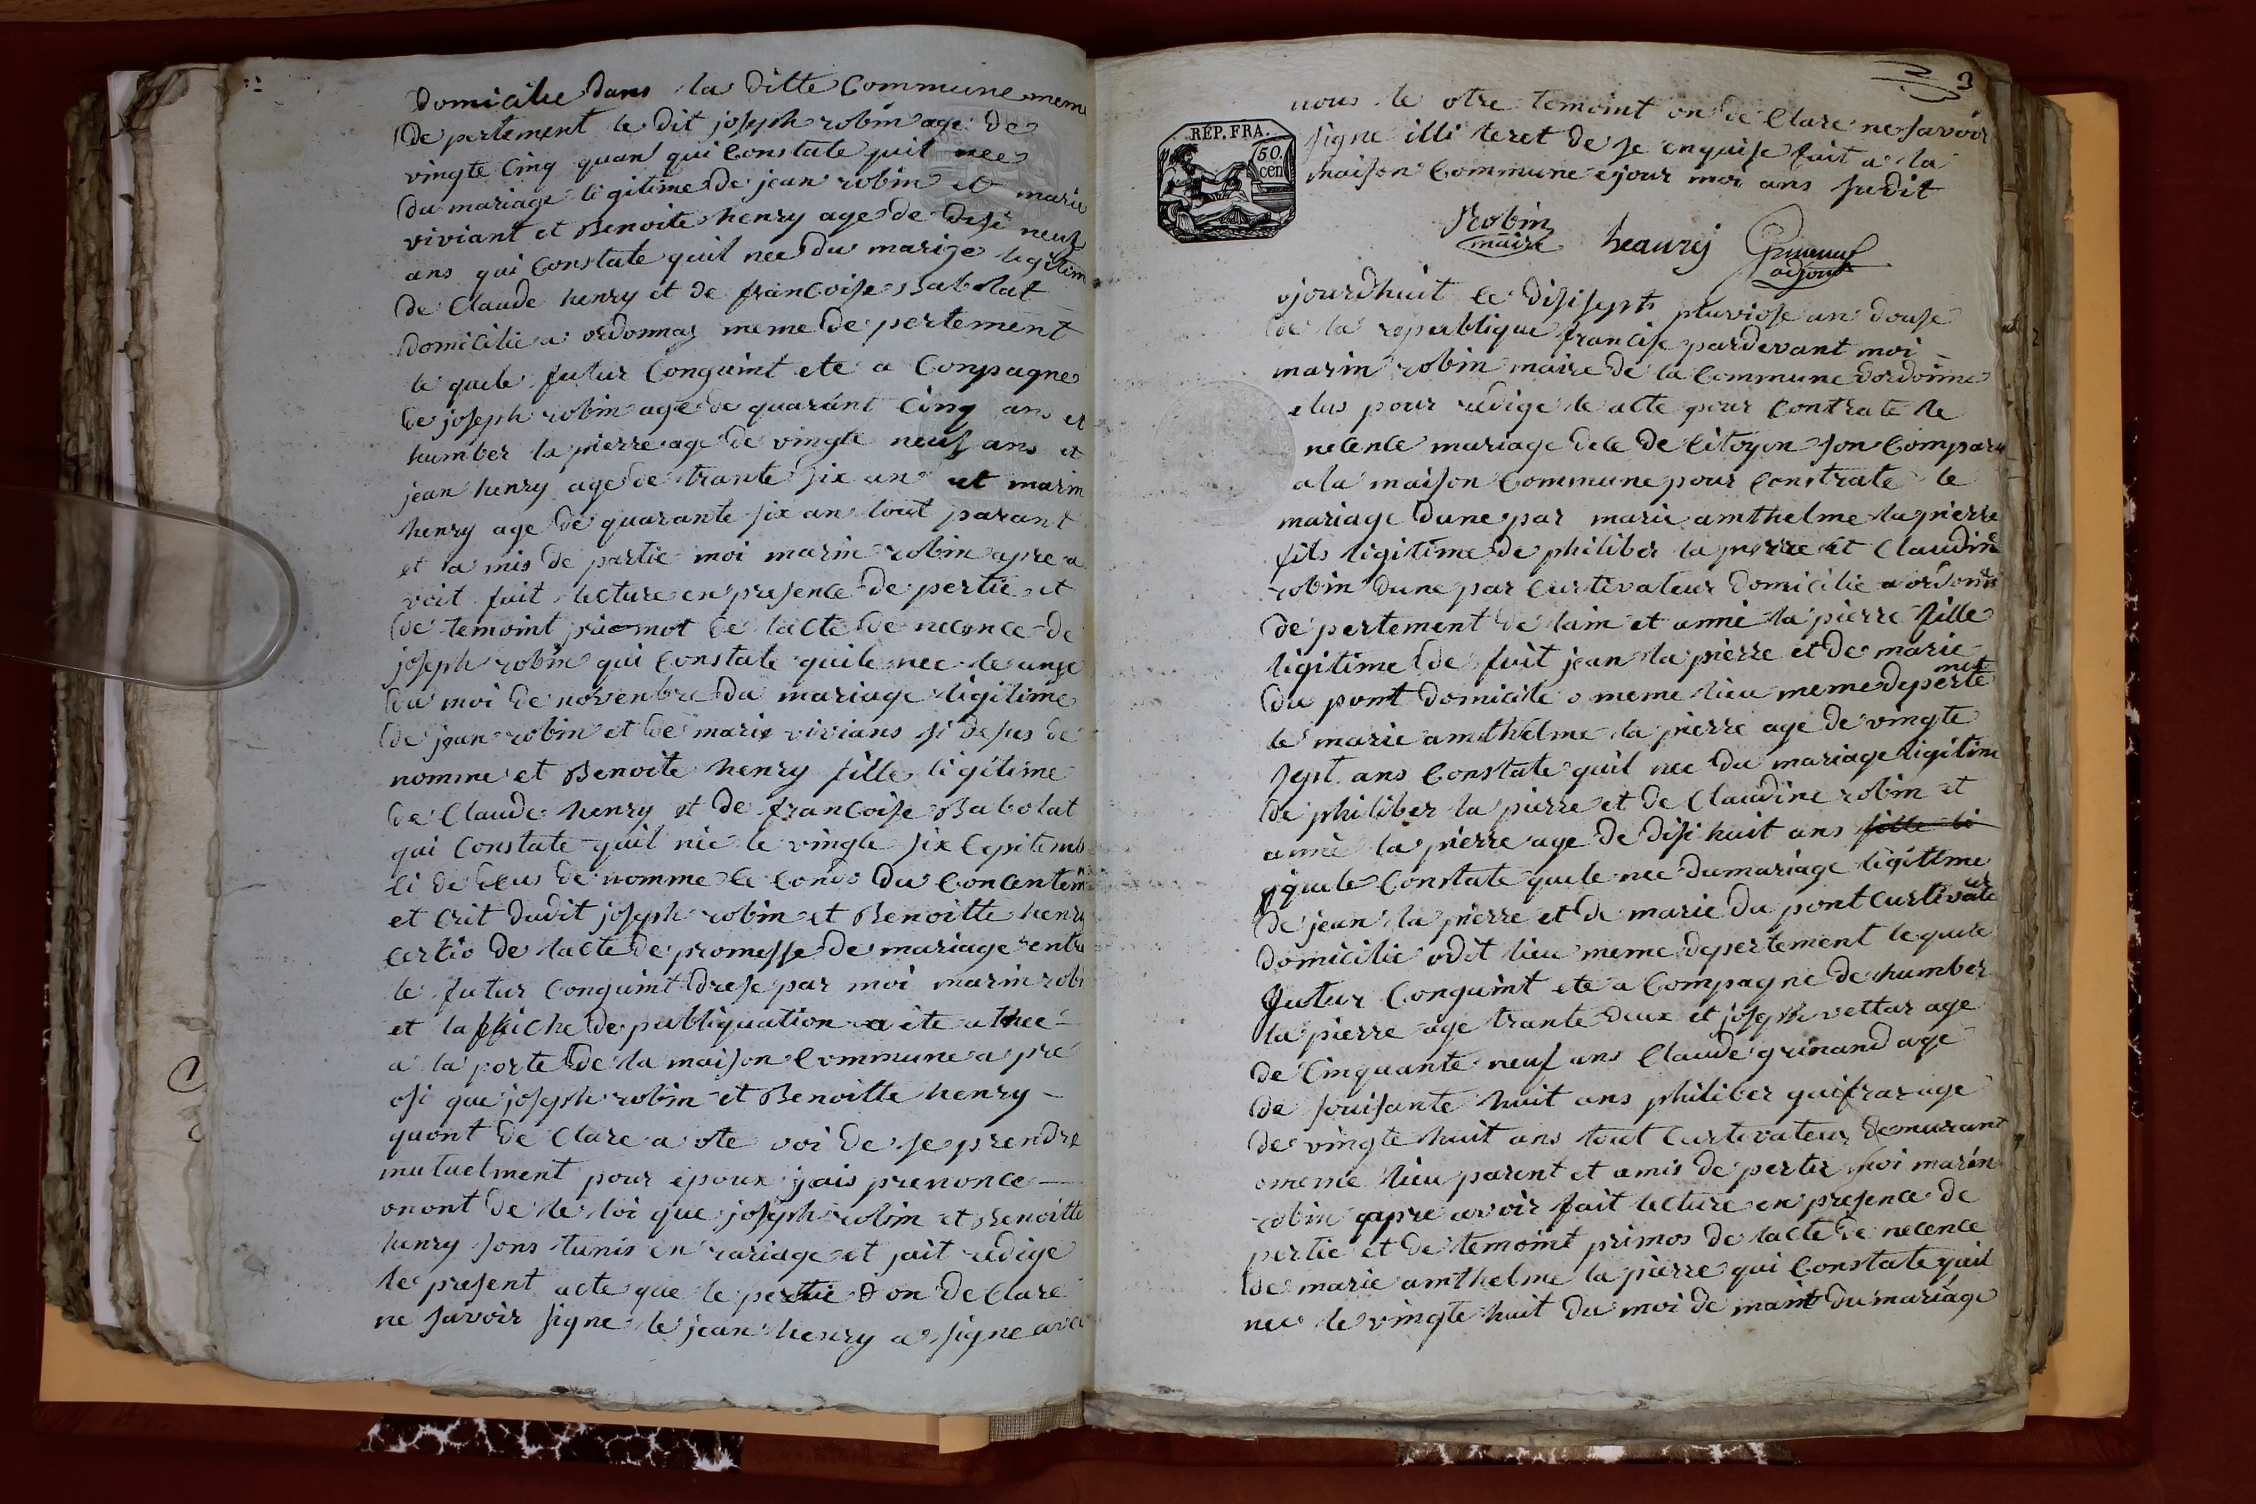 Domicilie dans la ditte Commune meme
De pertement le dit joseph robin age de
vingte Cinq quan qui Constate quil nee
du mariage ligitime de jean robin et marie
viviant et Benoite henry age de Disi neuf
ans qui Constate quil nee du marige legitim
de Claude henry et de francoise Babolat
domicilie a ordonnas meme de pertement
le quele futur Conguint ete a Conpagne
de joseph robin age de quarant Cinq ans et
humber la pierre age de vingte neuf ans et
jean henry age de trante six an et marin
henry age de quarante six an tout parant
et a mis de partie moi marin robin apre a
voit fait lecture en presence de pertie et
de temoint primot de lacte de necence de
joseph robin qui Constate quile nee le unze
du moi de novenbre du mariage ligitime
de jean robin et de marie vivians si desus de
nomme et Benoite henry fille ligitime
de Claude henry et de francoise Babolat
qui Constate quil nee le vingte six Cepitemb
Ci de Ceus de nomme le Cons du Concentem
et Crit dudit joseph robin et Benoitte henry
certio de lacte de promesse de mariage entre
le futur Conguint drese par moi marin robi
et lafiche de publiquation a ete a thee
a la porte de la maison Commune a pre
osi que joseph robin et Benoitte henry
quont de Clare a ote voi de se prendre
mutuelment pour epoux jais prenonce
onont de le loi que joseph robin et Benoitte
henry sons tunis en mariage et jait redige
le present acte que le pertie on de Clare
ne savoir signe le jean henry a signe avec
3
nous le otre temoint on de Clare ne savoir
RÉP. FRA.
50 cen
signe illi teret de se enquise fait a la
maison Commune ejour moi ans sudit
Robin
maire
heaurij
adjoint
ojourdhuit le disisept pluviose an douse
de la republique francise pardevant moi
marin robin maire de la Commune dordonne
elus pour redige le acte pour Contrate le
necence mariage dece de Citoyon son Comparu
a la maison Commune pour Constrate le
mariage dune par marie amthelme la pierre
fils ligitime de philiber la pierre et Claudine
robin dune par Curtivateur domicilie a ordonne
de pertement de lain et anne la pierre fille
ligitime de fuit jean la pierre et de marie
du pont domicile o meme lieu meme deperte
ment
le marie amthelme la pierre age de vingte
sept ans Constate quil nee du mariage ligitim
de philiber la pierre et de Claudine robin et
anne la pierre age de disi huit ans fille li
quele Constate quele nee du mariage ligitime
de jean la pierre et de marie du pont Curtivateur
domicilie odit lieu meme depertement lequele
futur Conguint ete a Compagne de humber
la pierre age trante deux et joseph vettar age
de Cinquante neuf ans Claude grinand age
de souisante huit ans philiber guifrar age
de vingte huit ans tout Curtivateur demurant
omeme lieu parent et amis de pertie moi marin
robin apre avoir fait lecture en presence de
pertie et de temoint primos de lacte de necence
de marie amthelme la pierre qui Constate quil
nee le vingte huit du moi de du mariage